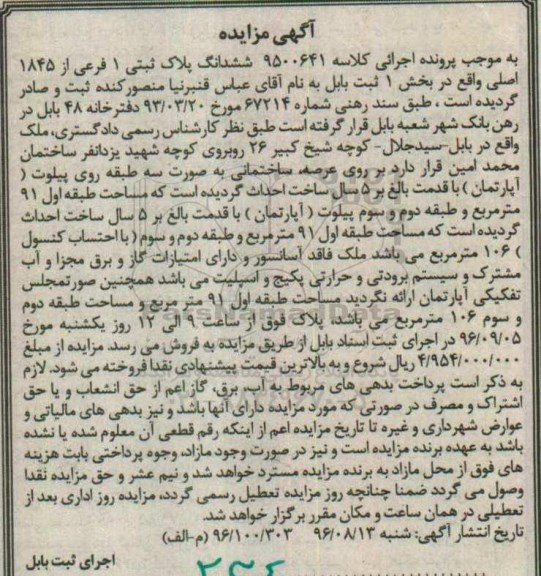 آگهی مزایده
به موجب پرونده اجرائی کلاسه ۹۵۰۰۶۴۱ ششدانگ پلاک ثبتی ۱ فرعی از ۱۸۴۵
اصلی واقع در بخش ۱ ثبت بابل به نام آقای عباس قنبرنیا منصورکنده ثبت و صادر
گردیده است ، طبق سند رهنی شماره ۶۷۲۱۴ مورخ ۹۳/۰۳/۲۰ دفترخانه ۴۸ بابل در
رهن بانک شهر شعبه بابل قرار گرفته است طبق نظر کارشناس رسمی دادگستری، ملک
واقع در بابل-سیدجلال- کوچه شیخ کبیر ۲۶ روبروی کوچه شهید یزدانفر ساختمان
محمد امین قرار دارد بر روی عرصه، ساختمانی به صورت سه طبقه روی پیلوت (
آپارتمان ) با قدمت بالغ بر ۵ سال ساخت احداث گردیده است که مساحت طبقه اول ۹۱
مترمربع و طبقه دوم و سوم پیلوت ( آپارتمان ) با قدمت بالغ بر ۵ سال ساخت احداث
گردیده است که مساحت طبقه اول ۹۱ مترمربع و طبقه دوم و سوم ( با احتساب کنسول
) ۱۰۶ مترمربع می باشد ملک فاقد آسانسور و دارای امتیازات گاز و برق مجزا و آب
مشترک و سیستم برودتی و حرارتی پکیج و اسپلیت می باشد همچنین صورتمجلس
تفکیکی آپارتمان ارائه نگردید مساحت طبقه اول ۹۱ متر مربع و مساحت طبقه دوم
و سوم ۱۰۶ مترمربع می باشد، پلاک فوق از ساعت ۹ الی ۱۲ روز یکشنبه مورخ
۹۶/۰۹/۰۵ در اجرای ثبت اسناد بابل از طریق مزایده به فروش می رسد. مزایده از مبلغ
۴/۹۵۴/۰۰۰/۰۰۰ ریال شروع و به بالاترین قیمت پیشنهادی نقدا فروخته می شود. لازم
به ذکر است پرداخت بدهی های مربوط به آب، برق، گاز اعم از حق انشعاب و یا حق
اشتراک و مصرف در صورتی که مورد مزایده دارای آنها باشد و نیز بدهی های مالیاتی و
عوارض شهرداری و غیره تا تاریخ مزایده اعم از اینکه رقم قطعی آن معلوم شده یا نشده
باشد به عهده برنده مزایده است و نیز در صورت وجود مازاد، وجوه پرداختی بابت هزینه
های فوق از محل مازاد به برنده مزایده مسترد خواهد شد و نیم عشر و حق مزایده نقدا
وصول می گردد ضمنا چنانچه روز مزایده تعطیل رسمی گردد، مزایده روز اداری بعد از
تعطیلی در همان ساعت و مکان مقرر برگزار خواهد شد.
تاریخ انتشار آگهی: شنبه ۹۶/۰۸/۱۳ ۹۶/۱۰۰/۳۰۳ (م-الف)
اجرای ثبت بابل